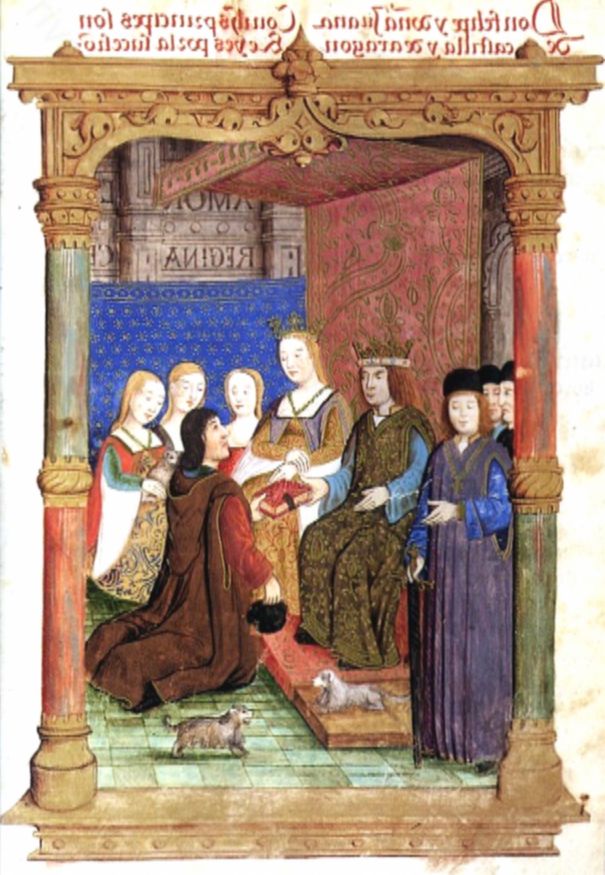 Don felipe y doña Juana. principes son
de castilla y de aragon Reyes por la
ROMA
REGINA